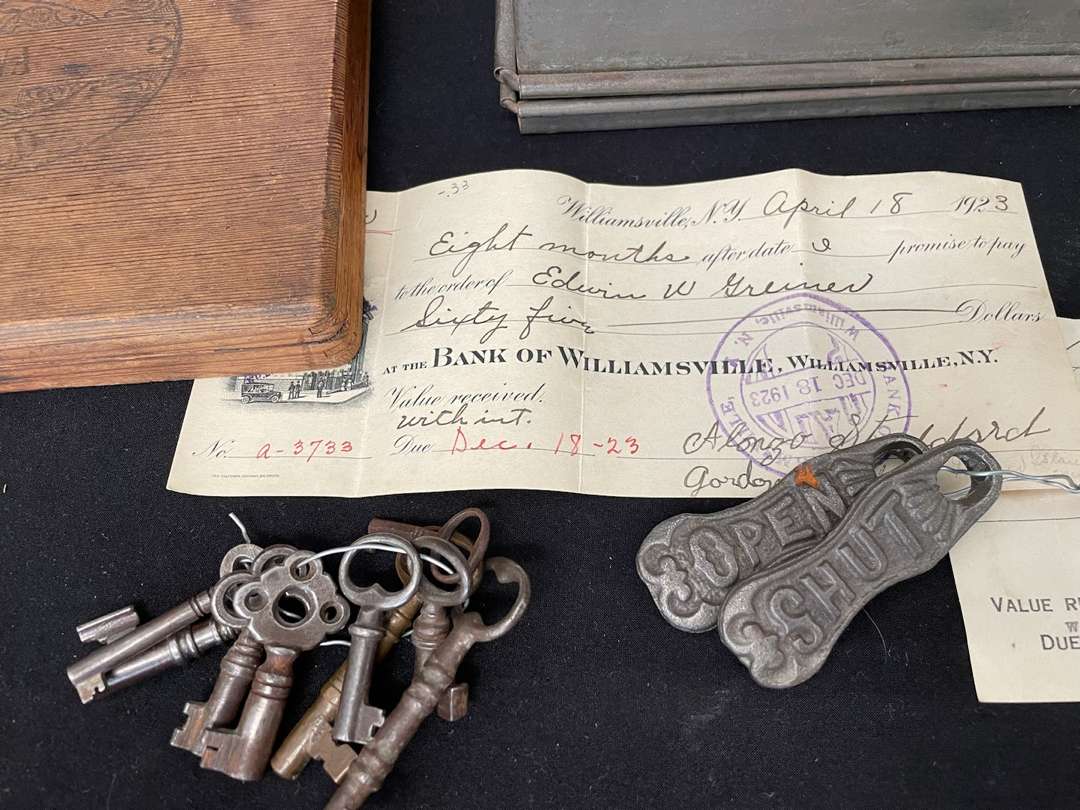 -.33
Williamsville, N.Y. April 18 1923
Eight months after date I promise to pay
to the order of Edwin W Greiner
Sixty five Dollars
AT THE BANK OF WILLIAMSVILLE, WILLIAMSVILLE, N.Y.
Value received.
with int.
No. a-3733 Due Dec. 18-23
Alonzo
Gordon
BANK O
Williamsville, N.
DEC 18 1923
OPEN
SHUT
VALUE RE
W
DUE